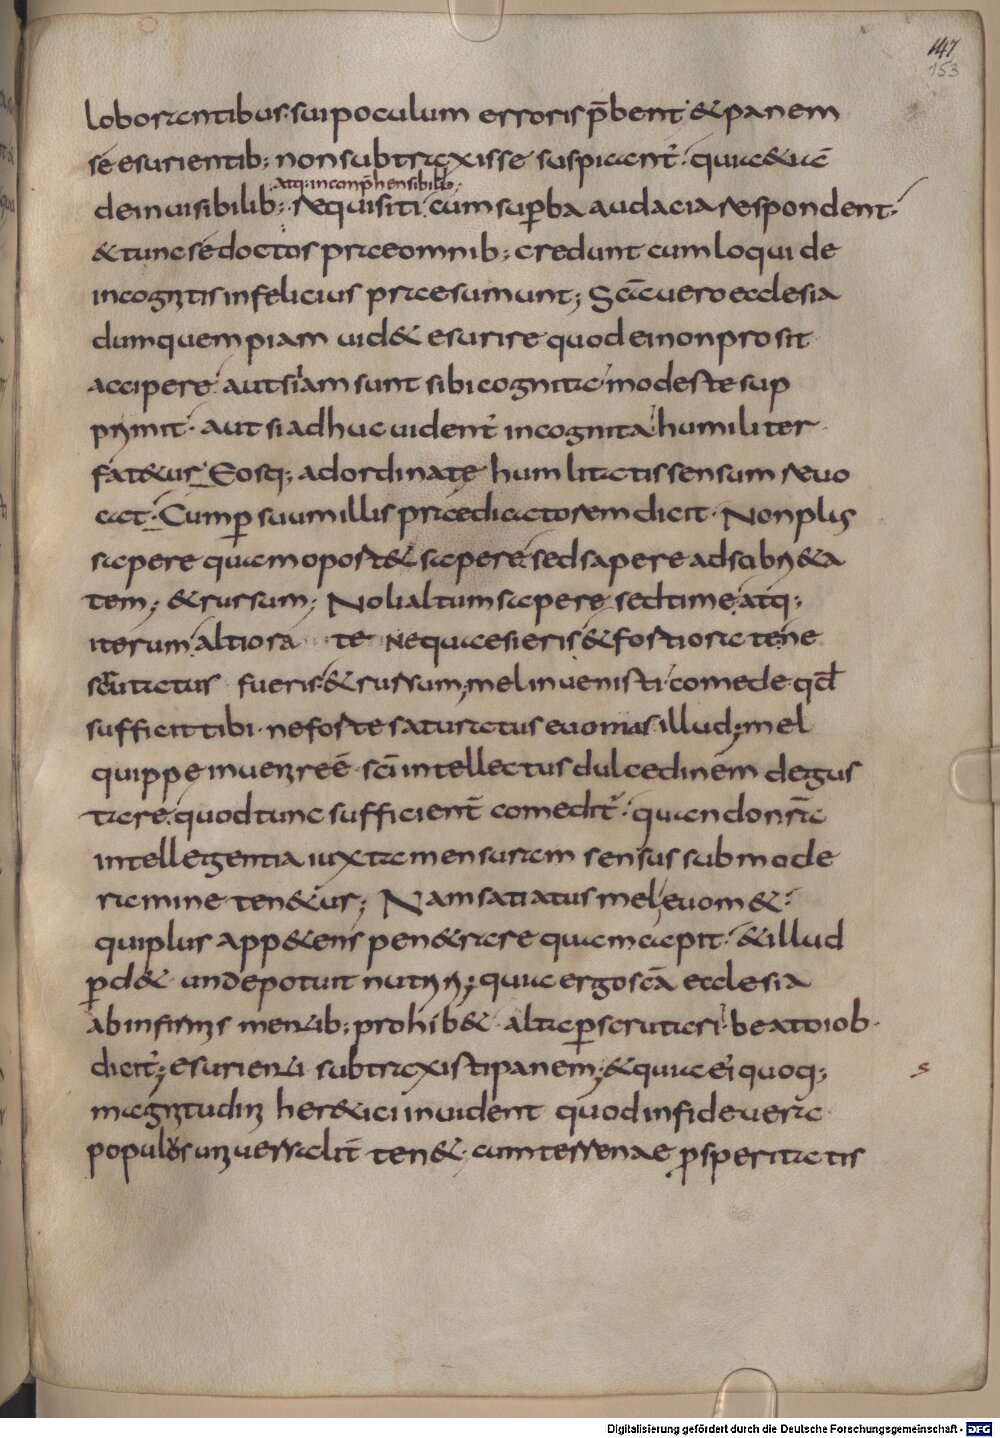 147
153
loborantibus sui poculum erroris p̄bent & panem
se esurientib; non subtraxisse suspicant̄. quia & uē
atq; inconp̄hensibilib;
de inuisibilib; requisiti cum sup̱ba audacia respondent.
& tunc se doctos prae omnib; credunt cum loqui de
incognitis infelicius praesumunt; Sc̄a uero ecclesia
dum quempiam uid& esurire quod ei non prosit
accipere. aut si iam sunt sibi cognita modeste sup
primit. aut si adhuc uident̄ incognita humiliter
fat&ur. Eosq; ad ordinatę humilitatis sensum reuo
cat. Cum p̱ suum illis praedicatorem dicit. Non plus
sapere quam oport& sapere. sed sapere ad sobri&a
tem; & rursum; Noli altum sapere sed time. atq;
iterum altiora te ne quaesieris & fortiora te ne
scrutatus fueris. & rursum; mel inuenisti comede qđ
sufficit tibi. ne forte saturatus euomas illud; mel
quippe inuenire ē sc̄i intellectus dulcedinem degus
tare. quod tunc sufficient̄ comedit̄. quando nr̄a
intellegentia iuxta mensuram sensus sub mode
ramine ten&ur; Nam satiatus mel euom&.
qui plus app&ens pen&rare quam capit. & illud
p̱d& unde potuit nutriri; quia ergo sc̄a ecclesia
ab infirmis mentib; prohib& alta p̱scrutari. beato iob
dicit̄; esurienti subtraxisti panem; & quia ei quoq;
s
magnitudini her&ici inuident quod in fide uera
populos uniuersalit̄ ten&. cum terrenae p̱speritatis
Digitalisierung gefördert durch die Deutsche Forschungsgemeinschaft - DFG